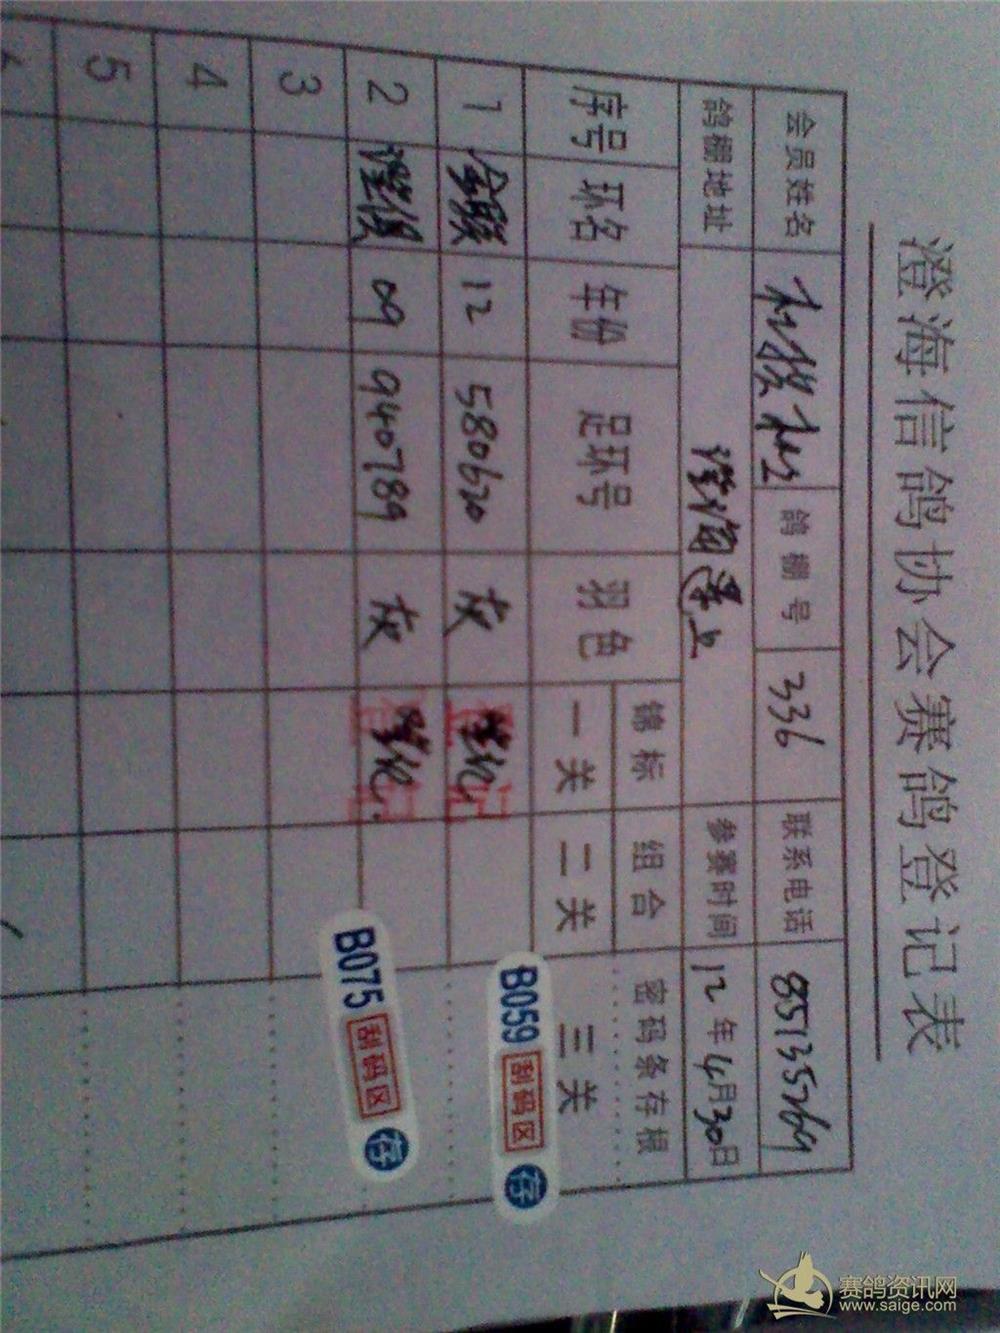 澄海信鸽协会赛鸽登记表
会员姓名 鸽棚号 336 联系电话 85135769
鸽棚地址 澄海莲上 参赛时间 12年4月30日
序号 环名 年份 足环号 羽色 锦标 组合 密码条存根
一关 二关 三关
1 12 580620 灰 B059 刮码区 存
2 澄信 09 940789 灰 B075 刮码区 存
3
4
5
赛鸽资讯网
www.saige.com